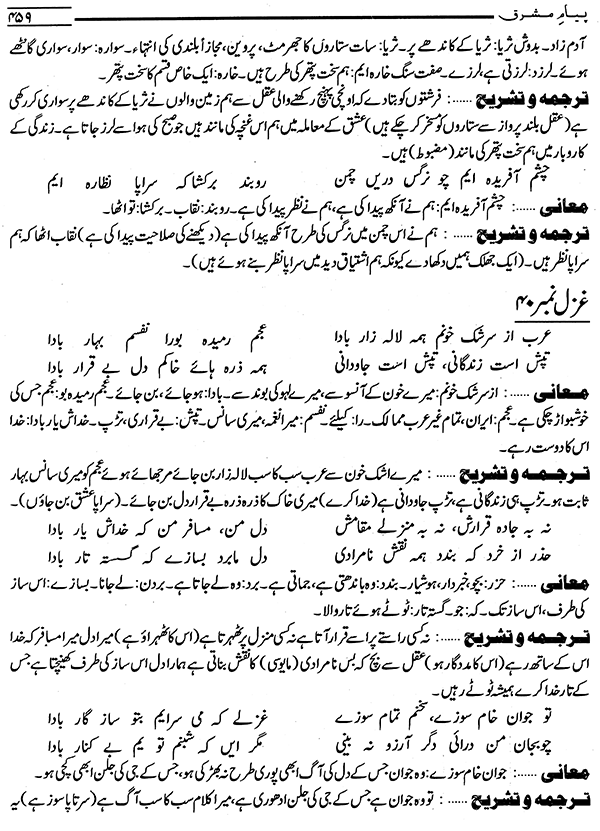 پیامِ مشرق
۴۵۹
آدم زاد۔ بدوش ثریا: ثریا کے کاندھے پر۔ ثریا: سات ستاروں کا جھرمٹ، پروین، مجازاً بلندی کی انتہاء۔ سوارہ: سوار، سواری گانٹھے
ہوئے۔ لرزد: لرزتی ہے، لرزے۔ صفت سنگ خارہ ایم: ہم سخت پتھر کی طرح ہیں۔ خارہ: ایک خاص قسم کا سخت پتھر۔
ترجمہ و تشریح ...... : فرشتوں کو بتا دے کہ اونچی پہنچ رکھنے والی عقل سے ہم زمین والوں نے ثریا کے کاندھے پر سواری کر رکھی
ہے (عقل بلند پرواز سے ستاروں کو مسخر کر چکے ہیں) عشق کے معاملہ میں ہم اس غنچہ کی مانند ہیں جو صبح کی ہوا سے لرز جاتا ہے۔ زندگی کے
کاروبار میں ہم سخت پتھر کی مانند (مضبوط) ہیں۔
چشم آفریدہ ایم چو نرگس دریں چمن روبند برکشا کہ سراپا نظارہ ایم
معانی ...... : چشم آفریدہ ایم: ہم نے آنکھ پیدا کی ہے، ہم نے نظر پیدا کی ہے۔ روبند: نقاب۔ برکشا: تو اٹھا۔
ترجمہ و تشریح ...... : ہم نے اس چمن میں نرگس کی طرح آنکھ پیدا کی ہے (دیکھنے کی صلاحیت پیدا کی ہے) نقاب اٹھا کہ ہم
سراپا نظر ہیں۔ (ایک جھلک ہمیں دکھا دے کیونکہ ہم اشتیاق دید میں سراپا نظر بنے ہوئے ہیں)۔
غزل نمبر ۴۰
عرب از سرشک خونم ہمہ لالہ زار بادا عجم رمیدہ بورا نفسم بہار بادا
تپش است زندگانی، تپش است جاودانی ہمہ ذرہ ہائے خاکم دل بے قرار بادا
معانی ...... : از سرشک خونم: میرے خون کے آنسو سے، میرے لہو کی بوند سے۔ بادا: ہو جائے، بن جائے۔ عجم رمیدہ بو: عجم جس کی
خوشبو اڑ چکی ہے۔ عجم: ایران، تمام غیر عرب ممالک۔ را: کیلئے۔ نفسم: میرا نغمہ، میری سانس۔ تپش: بے قراری، تڑپ۔ خداش یار بادا: خدا
اس کا دوست رہے۔
ترجمہ و تشریح ...... : میرے اشک خون سے عرب سب کا سب لالہ زار بن جائے مرجھائے ہوئے عجم کو میری سانس بہار
ثابت ہو۔ تڑپ ہی زندگانی ہے، تڑپ جاودانی ہے (خدا کرے) میری خاک کا ذرہ ذرہ بے قرار دل بن جائے۔ (سراپا عشق بن جاؤں)۔
نہ بہ جادہ قرارش، نہ بہ منزلے مقامش دل من، مسافر من کہ خداش یار بادا
حذر از خرد کہ بندد ہمہ نقش نامرادی دل مابرد بسازے کہ گسستہ تار بادا
معانی ...... : حزر: بچو، خبردار، ہوشیار۔ بندد: وہ باندھتی ہے، جماتی ہے۔ برد: وہ لے جاتا ہے۔ بردن: لے جانا۔ بسازے: اس ساز
کی طرف، اس ساز تک۔ کہ: جو۔ گسستہ تار: ٹوٹے ہوئے تار والا۔
ترجمہ و تشریح ...... : نہ کسی راستے پر اسے قرار آتا ہے نہ کسی منزل پر ٹھہرتا ہے (اس کا ٹھہراؤ ہے) میرا دل میرا مسافر کہ خدا
اس کے ساتھ رہے (اس کا مددگار ہو) عقل سے بچ کہ بس نامرادی (مایوسی) کا نقش بناتی ہے ہمارا دل اس ساز کی طرف کھینچتا ہے جس
کے تار خدا کرے ہمیشہ ٹوٹے رہیں۔
تو جوان خام سوزے، سخنم تمام سوزے غزلے کہ می سرایم بتو ساز گار بادا
چو بجان من درائی دگر آرزو نہ بینی مگر ایں کہ شبنم تو یم بے کنار بادا
معانی ...... : جوان خام سوزے: وہ جوان جس کے دل کی آگ ابھی پوری طرح نہ بھڑکی ہو، جس کے جی کی جلن ابھی کچی ہو۔
ترجمہ و تشریح ...... : تو وہ جوان ہے جس کے جی کی جلن ادھوری ہے، میرا کلام سب کا سب آگ ہے (سرتاپا سوز ہے) یہ